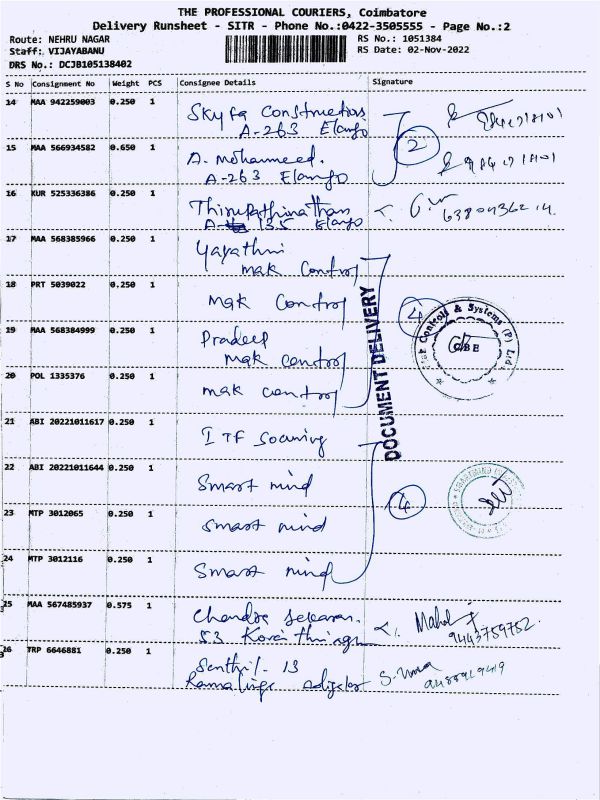 THE PROFESSIONAL COURIERS, Coimbatore
Delivery Runsheet - SITR - Phone No.:0422-3505555 - Page No.:2
Route: NEHRU NAGAR
RS No.: 1051384
Staff: VIJAYABANU
RS Date: 02-Nov-2022
DRS No.: DCJB105138402
S No Consignment No Weight PCS Consignee Details Signature
14 MAA 942259003 0.250 1 Construction
A-263 Elango
15 MAA 566934582 0.650 1 A. Mohammeed.
A-263 Elango
2
16 KUR 525336386 0.250 1 Thirupathinathan
135 Elango
17 MAA 568385966 0.250 1 Gayathri
mak Control
18 PRT 5039022 0.250 1 mak Control
4
DOCUMENT DELIVERY
Controls & Systems (P) Ltd
CBE
19 MAA 568384999 0.250 1 Pradeep
mak Control
20 POL 1335376 0.250 1 mak Control
21 ABI 20221011617 0.250 1 ITF
22 ABI 20221011644 0.250 1 Smart mind
4
23 MTP 3012065 0.250 1 Smart mind
24 MTP 3012116 0.250 1 Smart mind
25 MAA 567485937 0.575 1 Chandra Sekaran.
53
9443759752.
26 TRP 6646881 0.250 1 Senthil. 13
S. Uma